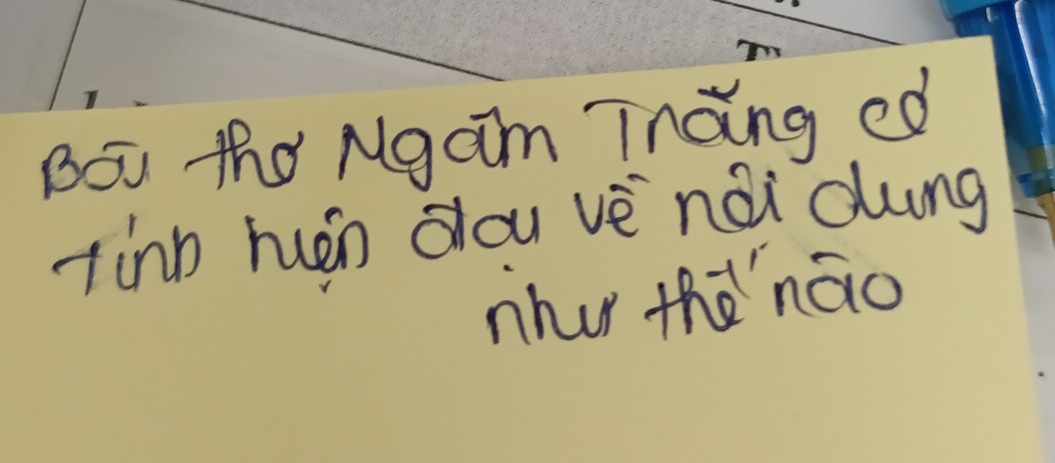 Bài thơ Ngắm Trăng có
tính hiện đại về nội dung
như thế nào